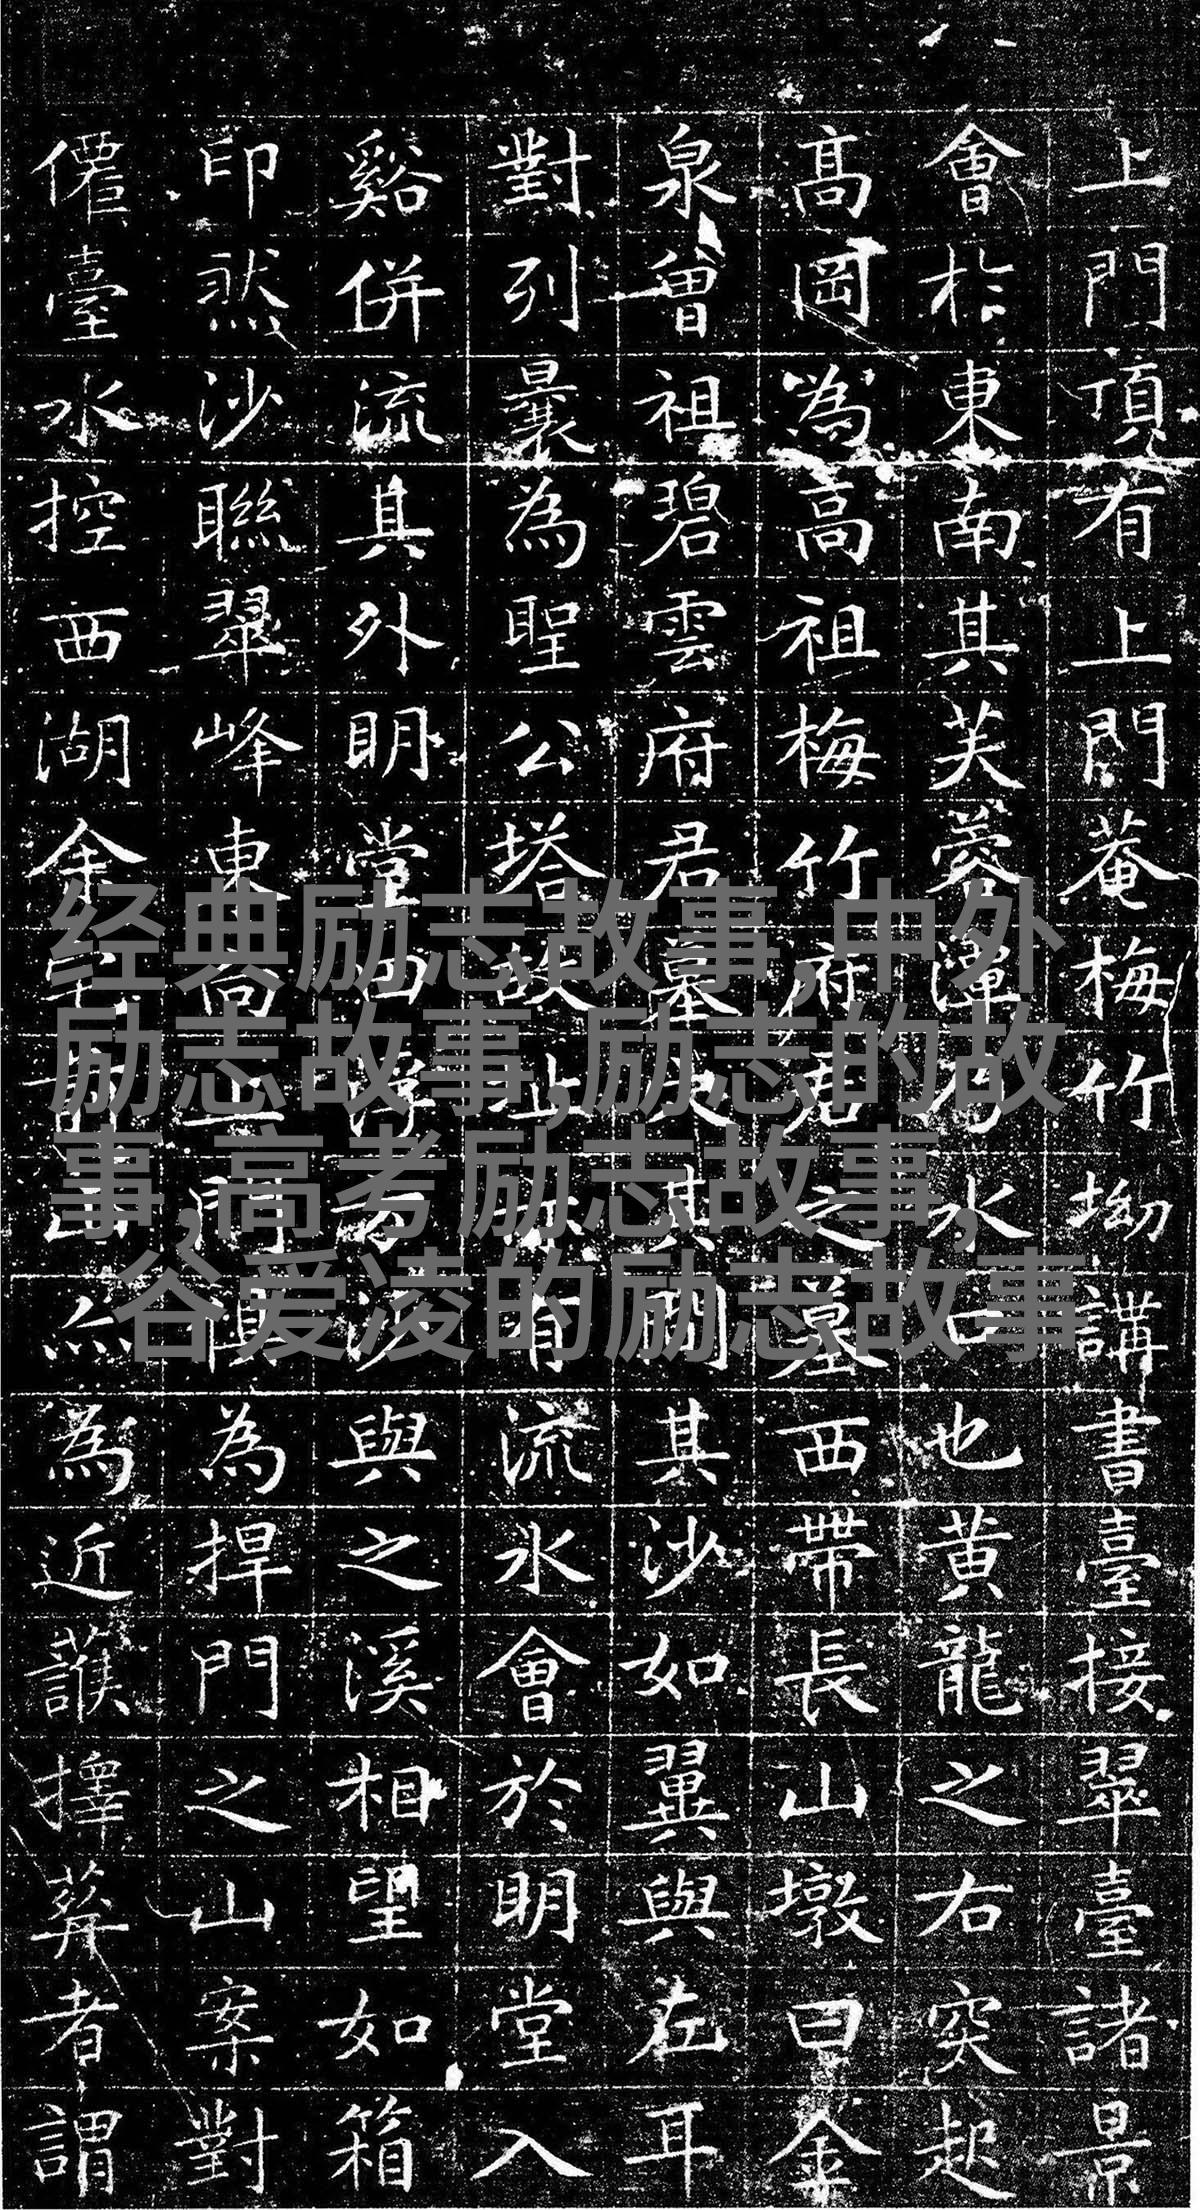 上門頂有上門菴梅竹坳講書臺接翠臺諸景
會於東南其芙蓉潭乃水口也黃龍之右突起
高岡為高祖梅竹府君之墓西帶長山墩曰金
泉曾祖碧雲府君墓其閒其沙如翼與左耳
對列曩為聖公塔故址有流水會於明堂入
谿併流其外明堂四浮沙與之溪相望如箱
印然沙聯翠峰東上俱為捍門之山案對
僊臺水控西湖余宅山亦為近護擇葬者謂
经典励志故事,中外
励志故事,励志的故
事,高考励志故事,
谷爱凌的励志故事